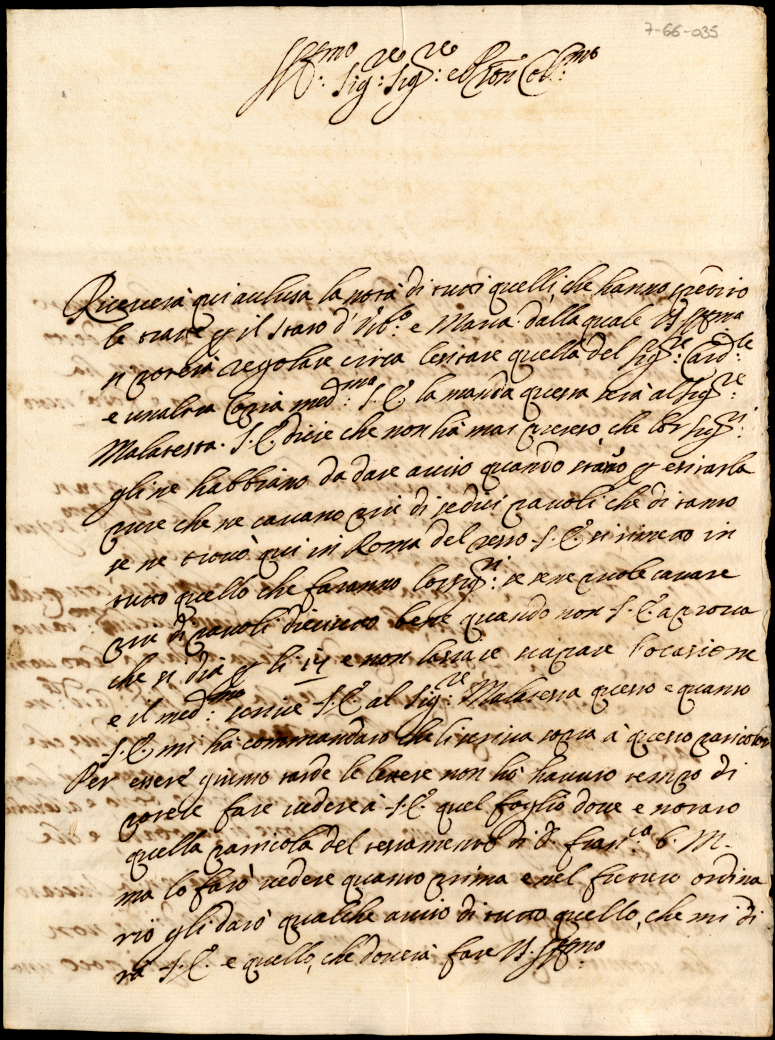 7-66-035
Ill.mo Sig.re Sig.re e Pron Col.mo
Riceverà qui acclusa la nota di tutti quelli, che hanno
le tratte p il stato d'Urb.o e Marca dalla quale V.S. Ill.ma
si potrà regolare circa l'esitare quella del Sig.re Card.le
e un altra Copia med.ma S.E. la manda questa sera al Sig.re
Malatesta. S.E. dicie che non hà mai preteso che lor Sig.ri
gli ne habbiano da dare aviso quando p esitarla
pure che ne cavano più di sedici pavoli che di tanto
se ne trovò qui in Roma del resto S.E. si rimette in
tutto quello che faranno lor Sig.ri se se ne puole cavare
più di pavoli diecisette bene quando non S.E. aprova
che si dia p li 17 e non lasciare scapare l'ocasione
e il med.mo scrive S.E. al Sig.re Malatesta questo e quanto
S.E. mi hà commandato che li scriva sopra à questo particolar
Per essere giunto tarde le lettere non hò havuto tempo di
potere fare vedere à S.E. quel foglio dove e notato
quella particola del testamento di D. Fran.ca b. M.
ma lo farò vedere quanto prima e nel futuro ordina
rio gli darò qualche aviso di tutto quello, che mi di
rà S.E. e quello, che doverà fare V.S. Ill.mo